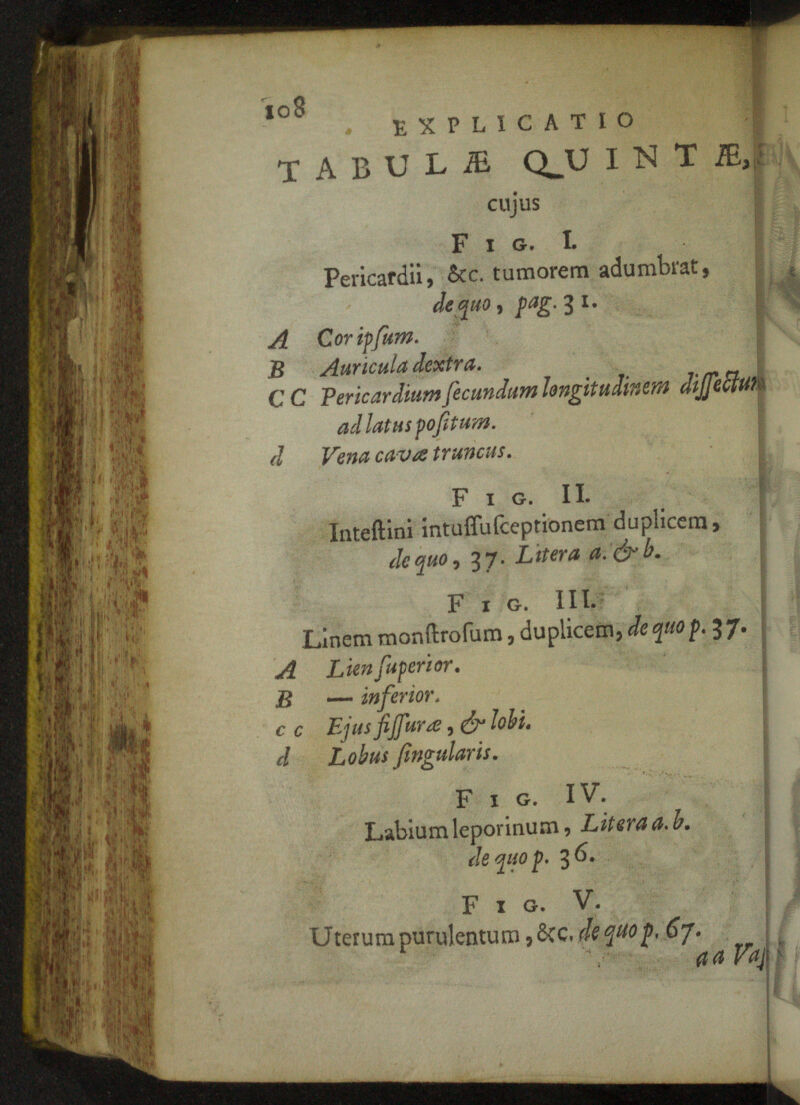 108
EXPLICATIO
TABULÆ QUINTÆ,
cujus
FIG. I.
Pericardii, &c. tumorem adumbrat,
de quo, pag. 31.
A Cor ipſum.
B Auricula dextra.
C C Pericardium ſecundum longitudinem diſſectum
ad latus poſitum.
d Vena cavæ truncus.
FIG. II.
Inteſtini intuſſuſceptionem duplicem,
de quo, 37. Litera a. & b.
FIG. III.
Linem monſtroſum, duplicem, de quo p. 37.
A Lien ſuperior.
B — inferior.
c c Ejus fiſſuræ, & lobi.
d Lobus ſingularis.
FIG. IV.
Labium leporinum, Litera a. b.
de quo p. 36.
FIG. V.
Uterum purulentum, &c. de quo p. 67.
a a Vaſ